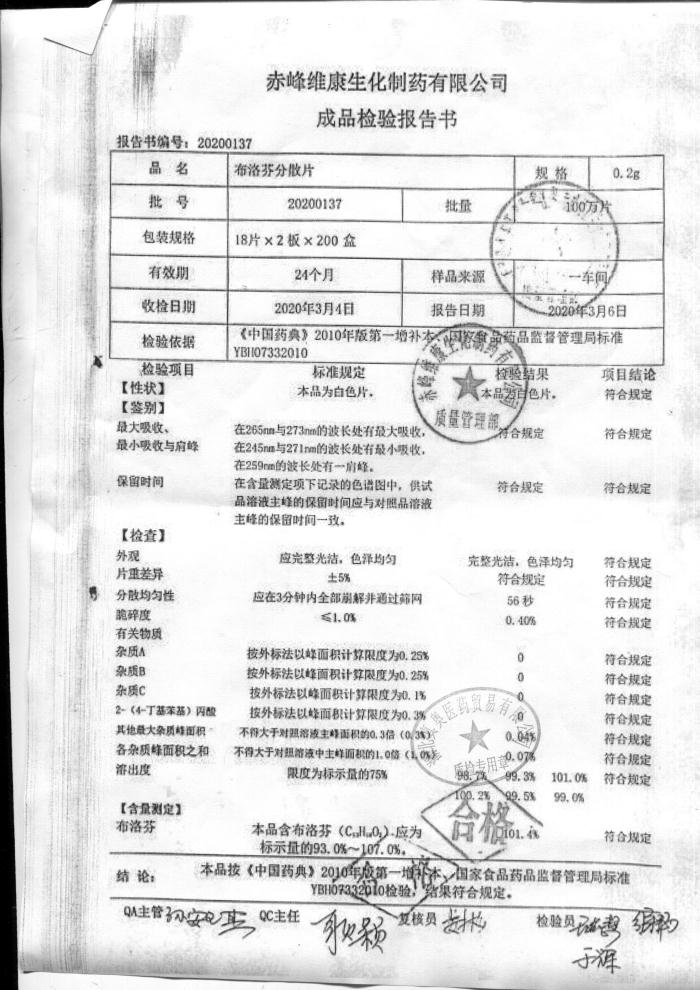 赤峰维康生化制药有限公司
成品检验报告书
报告书编号：20200137
品 名 布洛芬分散片 规 格 0.2g
批 号 20200137 批量 100万片
包装规格 18片×2板×200盒
有效期 24个月 样品来源 一车间
收检日期 2020年3月4日 报告日期 2020年3月6日
检验依据 《中国药典》2010年版第一增补本、国家食品药品监督管理局标准
YBH07332010
检验项目 标准规定 检验结果 项目结论
【性状】 本品为白色片。 本品为白色片。 符合规定
【鉴别】
最大吸收、 在265nm与273nm的波长处有最大吸收， 符合规定 符合规定
最小吸收与肩峰 在245nm与271nm的波长处有最小吸收，
在259nm的波长处有一肩峰。
保留时间 在含量测定项下记录的色谱图中，供试 符合规定 符合规定
品溶液主峰的保留时间应与对照品溶液
主峰的保留时间一致。
【检查】
外观 应完整光洁，色泽均匀 完整光洁，色泽均匀 符合规定
片重差异 ±5% 符合规定 符合规定
分散均匀性 应在3分钟内全部崩解并通过筛网 56秒 符合规定
脆碎度 ≤1.0% 0.40% 符合规定
有关物质
杂质A 按外标法以峰面积计算限度为0.25% 0 符合规定
杂质B 按外标法以峰面积计算限度为0.25% 0 符合规定
杂质C 按外标法以峰面积计算限度为0.1% 0 符合规定
2-（4-丁基苯基）丙酸 按外标法以峰面积计算限度为0.3% 0 符合规定
其他最大杂质峰面积 不得大于对照溶液主峰面积的0.3倍（0.3%） 0.04% 符合规定
各杂质峰面积之和 不得大于对照溶液中主峰面积的1.0倍（1.0%） 0.07% 符合规定
溶出度 限度为标示量的75% 98.7% 99.3% 101.0% 符合规定
100.2% 99.5% 99.0%
【含量测定】
布洛芬 本品含布洛芬（C₁₃H₁₈O₂）应为 101.4% 符合规定
标示量的93.0%～107.0%。
结 论： 本品按《中国药典》2010年版第一增补本、国家食品药品监督管理局标准
YBH07332010检验，结果符合规定。
QA主管 QC主任 复核员 检验员
于辉
赤峰维康生化制药有限公司
质量管理部
医药贸易有限公司
质检专用章
合格